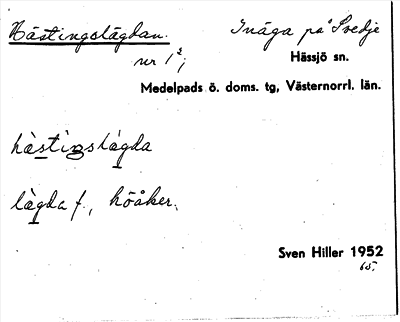 Hästingslägdan. Inäga på Svedje
nr 1²; Hässjö sn.
Medelpads ö. doms. tg, Västernorrl. län.
hàstiŋslágda
lägda f., höåker.
Sven Hiller 1952
65.